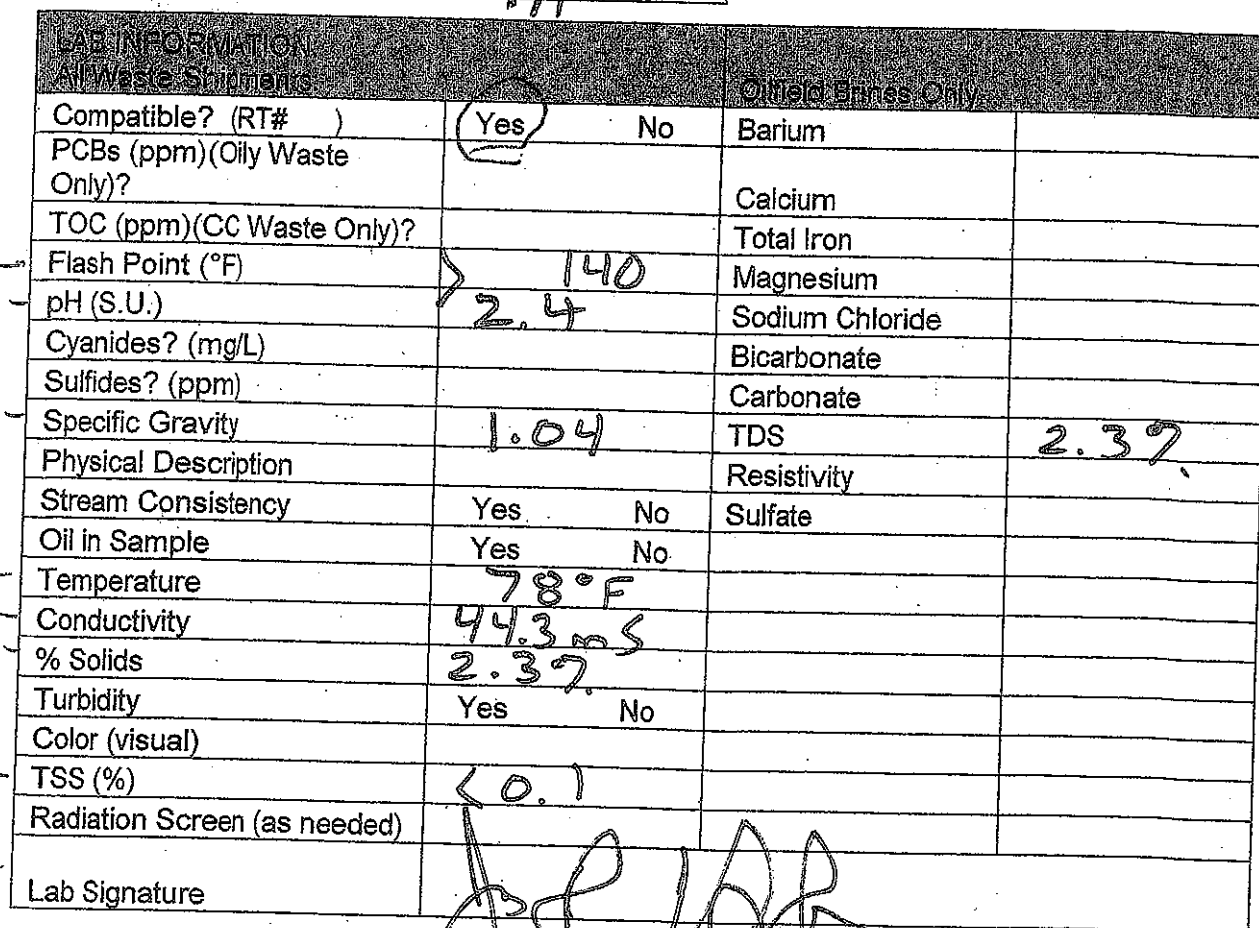 LAB INFORMATION
All Waste Shipments Oilfield Brines Only
Compatible? (RT# ) Yes No Barium
PCBs (ppm)(Oily Waste
Only)? Calcium
TOC (ppm)(CC Waste Only)? Total Iron
Flash Point (°F) > 140 Magnesium
pH (S.U.) 2.4 Sodium Chloride
Cyanides? (mg/L) Bicarbonate
Sulfides? (ppm) Carbonate
Specific Gravity 1.04 TDS 2.3%
Physical Description Resistivity
Stream Consistency Yes No Sulfate
Oil in Sample Yes No
Temperature 78°F
Conductivity 44.3 mS
% Solids 2.3%
Turbidity Yes No
Color (visual)
TSS (%) <0.1
Radiation Screen (as needed)
Lab Signature